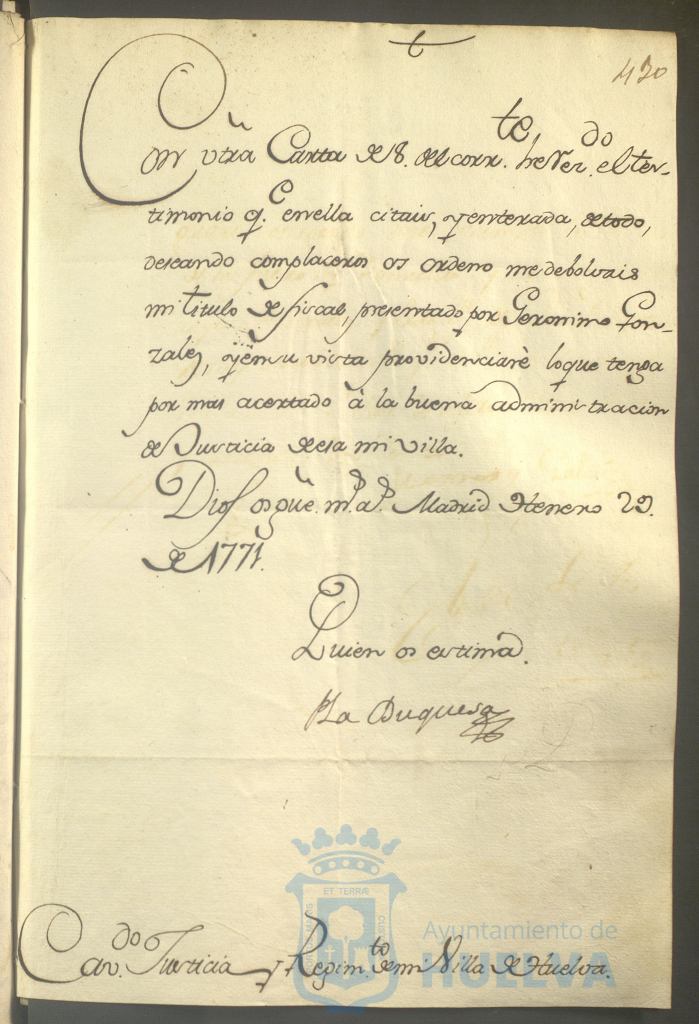 430
Con vtrã Carta de 8. del corr.te he Rez.do el tes-
timonio q.e en ella citais, y enterada, de todo,
deseando complaceros os ordeno me debolvais
mi titulo de fiscal, presentado por Geronimo Gon-
zalez, y en su vista providenciarè lo que tenga
por mas acertado à la buena administracion
de Justicia de esa mi villa.
Dios os gũe. m.s a.s Madrid y enero 29.
de 1771.
Quien os estima.
La Duquesa
ET TERRÆ
Ayuntamiento de
HUELVA
Cav.do Justicia y Regim.to de mi Villa de Huelva.